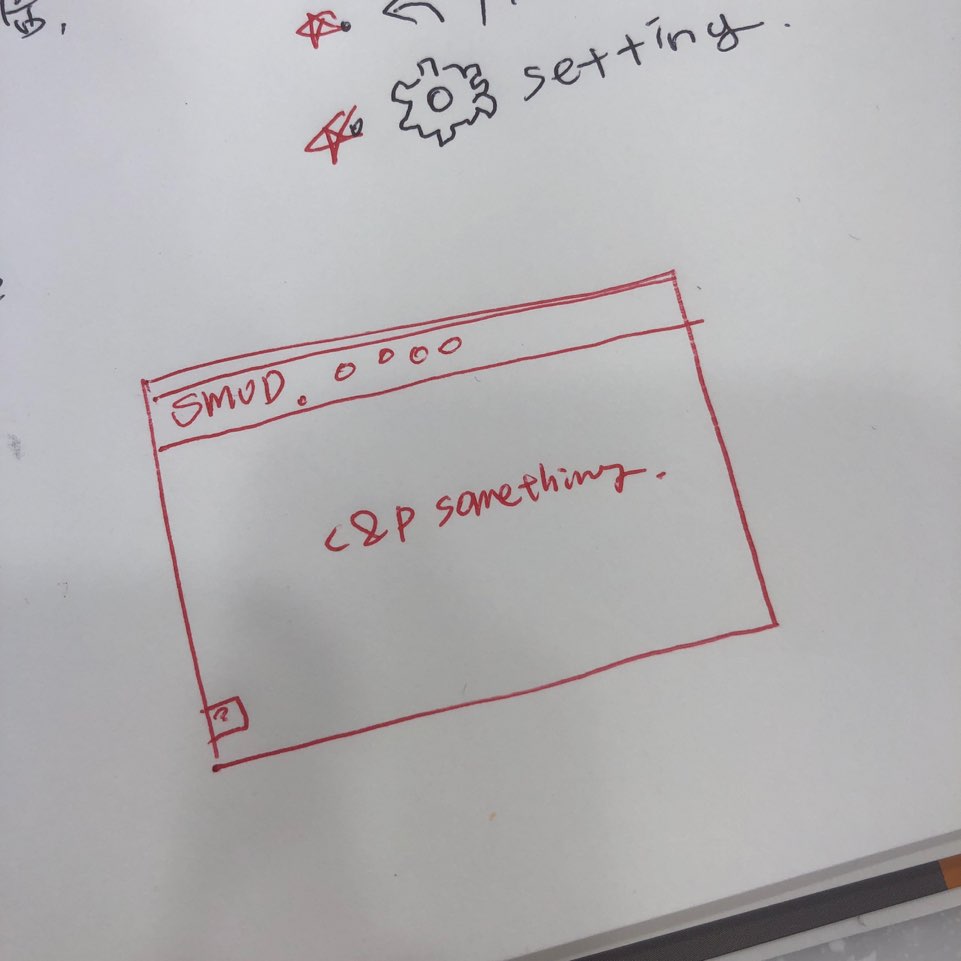 setting.
SMUD.
c&p something.
?